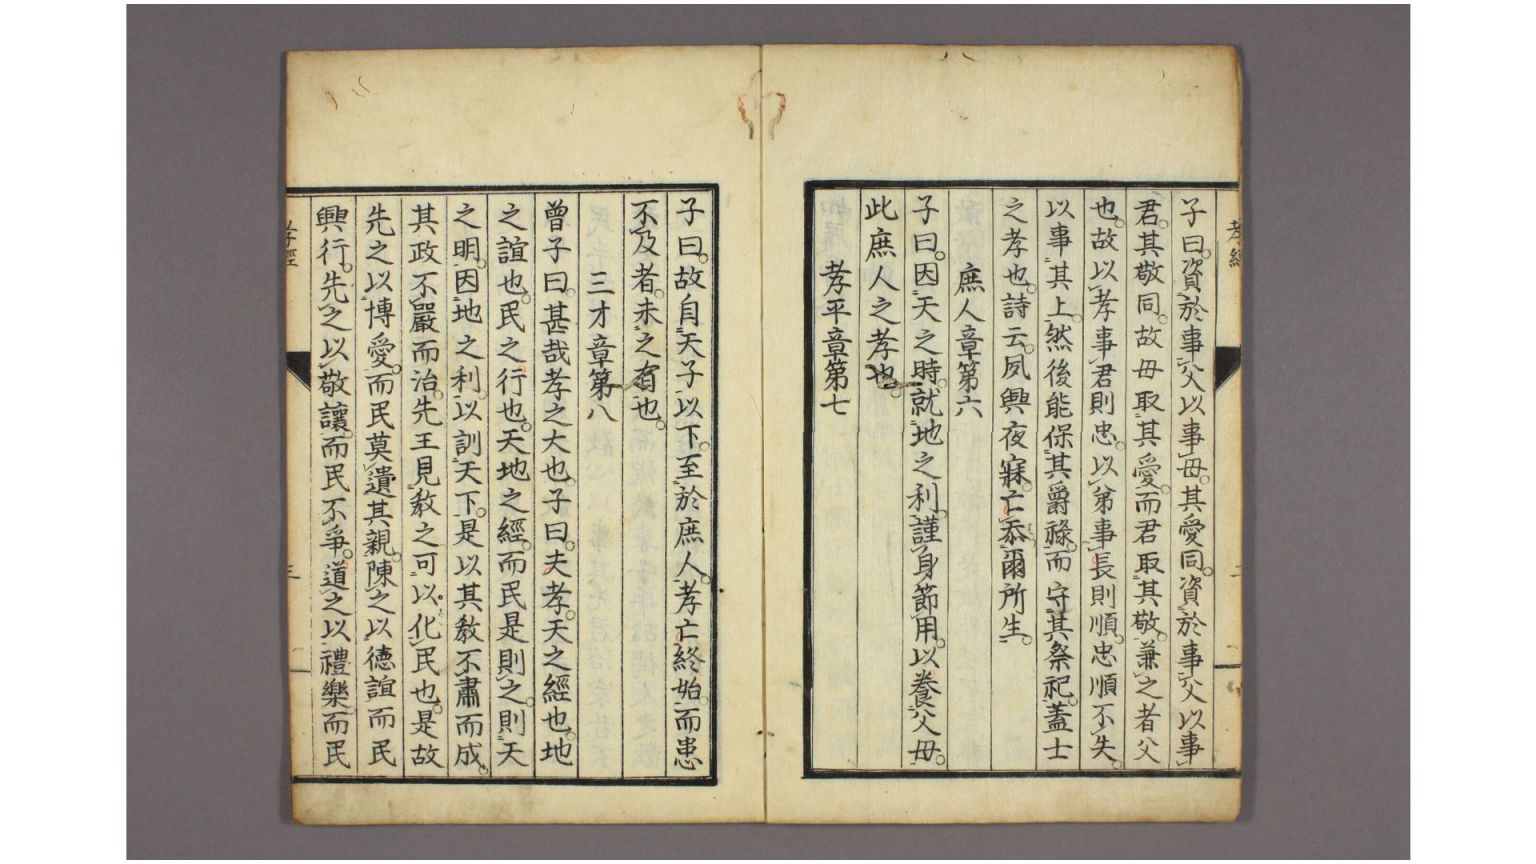 孝經
二
子曰。資於事父以事母。其愛同。資於事父以事
君。其敬同。故母取其愛。而君取其敬。兼之者父
也。故以孝事君則忠。以弟事長則順。忠順不失。
以事其上。然後能保其爵祿。而守其祭祀。蓋士
之孝也。詩云。夙興夜寐。亡忝爾所生。
庶人章第六
子曰。因天之時。就地之利。謹身節用。以養父母。
此庶人之孝也。
孝平章第七
子曰。故自天子以下。至於庶人。孝亡終始。而患
不及者。未之有也。
三才章第八
曾子曰。甚哉孝之大也。子曰。夫孝。天之經也。地
之誼也。民之行也。天地之經。而民是則之。則天
之明。因地之利。以訓天下。是以其敎不肅而成。
其政不嚴而治。先王見敎之可以化民也。是故
先之以博愛。而民莫遺其親。陳之以德誼而民
興行。先之以敬讓。而民不爭。道之以禮樂。而民
孝經
三